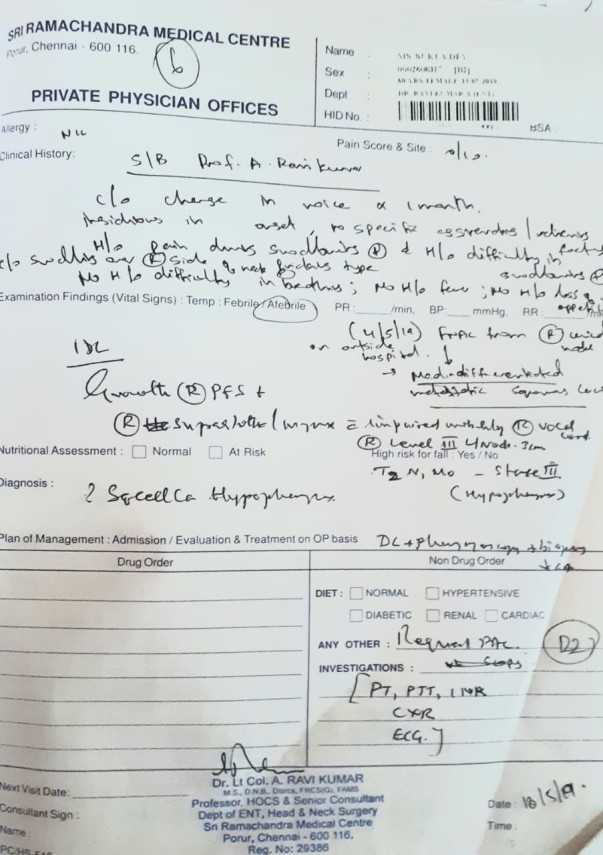 SRI RAMACHANDRA MEDICAL CENTRE
Porur, Chennai - 600 116.
6
PRIVATE PHYSICIAN OFFICES
Name :
Sex :
Dept :
HID No. :
BSA :
Allergy : NIL
Pain Score & Site : 0/10.
Clinical History: S/B Prof. A. Ravikumar
c/o change in voice x 1 month.
insidious in onset, no specific aggravating / relieving factors
H/o pain during swallowing (R) & H/o difficulty in swallowing (R)
c/o swelling over (R) side of neck
No H/o difficulty in breathing ; No H/o fever ; No H/o loss of appetite
Examination Findings (Vital Signs) : Temp : Febrile / Afebrile PR : /min, BP mmHg, RR : /min
(4/5/19) FNAC from (R) node
on outside hospital.
→ Mod-differentiated
metastatic Squamous
IDL
Growth (R) PFS +
(R) supraglottic / larynx impaired mobility (R) vocal cord.
(R) Level III Node - 3cm
Nutritional Assessment : Normal At Risk High risk for fall : Yes / No
T2 N1 M0 - Stage III
(Hypopharynx)
Diagnosis : ? Sq cell Ca Hypopharynx
Plan of Management : Admission / Evaluation & Treatment on OP basis DL + pharyngoscopy + biopsy
Drug Order
Non Drug Order
DIET : NORMAL HYPERTENSIVE
DIABETIC RENAL CARDIAC
ANY OTHER : Request PAC. D2
INVESTIGATIONS :
[PT, PTT, INR
CXR
ECG.]
Next Visit Date:
Consultant Sign :
Name :
Dr. Lt Col. A. RAVI KUMAR
M.S., D.N.B., Dorcs, FRCS(G), FAMS
Professor, HOCS & Senior Consultant
Dept of ENT, Head & Neck Surgery
Sri Ramachandra Medical Centre
Porur, Chennai - 600 116.
Reg. No: 29386
Date : 18/5/19.
Time :